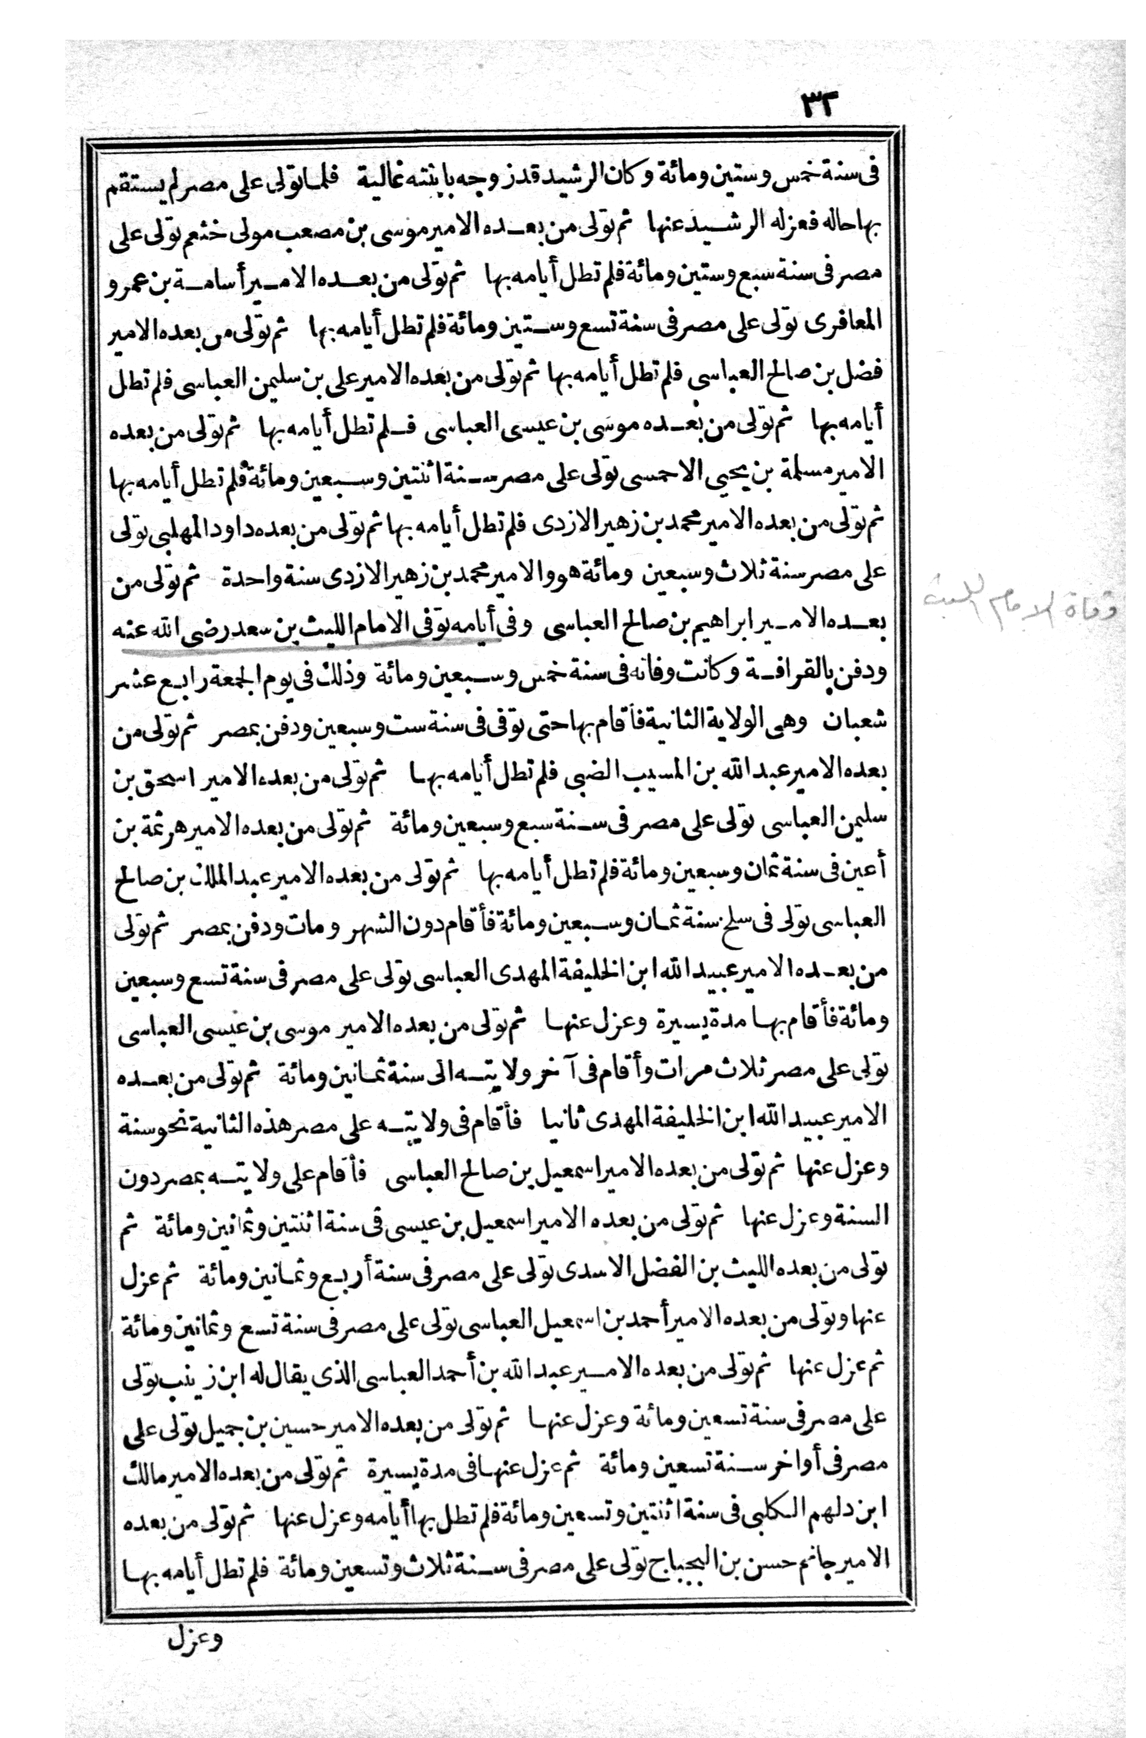 ٣٢
فى سنة خمس وستين ومائة وكان الرشيد قد زوجه بابنته غالية فلما تولى على مصر لم يستقم
بها حاله فعزله الرشيد عنها ثم تولى من بعده الامير موسى بن مصعب مولى خثعم تولى على
مصر فى سنة سبع وستين ومائة فلم تطل أيامه بها ثم تولى من بعده الامير أسامة بن عمرو
المعافرى تولى على مصر فى سنة تسع وستين ومائة فلم تطل أيامه بها ثم تولى من بعده الامير
فضل بن صالح العباسى فلم تطل أيامه بها ثم تولى من بعده الامير على بن سليمن العباسى فلم تطل
أيامه بها ثم تولى من بعده موسى بن عيسى العباسى فلم تطل أيامه بها ثم تولى من بعده
الامير مسلمة بن يحيى الاحمسى تولى على مصر سنة اثنتين وسبعين ومائة فلم تطل أيامه بها
ثم تولى من بعده الامير محمد بن زهير الازدى فلم تطل أيامه بها ثم تولى من بعده داود المهلبى تولى
على مصر سنة ثلاث وسبعين ومائة هو والامير محمد بن زهير الازدى سنة واحدة ثم تولى من
بعده الامير ابراهيم بن صالح العباسى وفى أيامه توفى الامام الليث بن سعد رضى الله عنه
وفاة الامام الليث
ودفن بالقرافة وكانت وفاته فى سنة خمس وسبعين ومائة وذلك فى يوم الجمعة رابع عشر
شعبان وهى الولاية الثانية فأقام بها حتى توفى فى سنة ست وسبعين ودفن بمصر ثم تولى من
بعده الامير عبد الله بن المسيب الضبى فلم تطل أيامه بها ثم تولى من بعده الامير اسحق بن
سليمن العباسى تولى على مصر فى سنة سبع وسبعين ومائة ثم تولى من بعده الامير هرثمة بن
أعين فى سنة ثمان وسبعين ومائة فلم تطل أيامه بها ثم تولى من بعده الامير عبد الملك بن صالح
العباسى تولى فى سلخ سنة ثمان وسبعين ومائة فأقام دون الشهر ومات ودفن بمصر ثم تولى
من بعده الامير عبيد الله ابن الخليفة المهدى العباسى تولى على مصر فى سنة تسع وسبعين
ومائة فأقام بها مدة يسيرة وعزل عنها ثم تولى من بعده الامير موسى بن عيسى العباسى
تولى على مصر ثلاث مرات وأقام فى آخر ولايته الى سنة ثمانين ومائة ثم تولى من بعده
الامير عبيد الله ابن الخليفة المهدى ثانيا فأقام فى ولايته على مصر هذه الثانية نحو سنة
وعزل عنها ثم تولى من بعده الامير اسمعيل بن صالح العباسى فأقام على ولايته بمصر دون
السنة وعزل عنها ثم تولى من بعده الامير اسمعيل بن عيسى فى سنة اثنتين وثمانين ومائة ثم
تولى من بعده الليث بن الفضل الاسدى تولى على مصر فى سنة أربع وثمانين ومائة ثم عزل
عنها وتولى من بعده الامير أحمد بن اسمعيل العباسى تولى على مصر فى سنة تسع وثمانين ومائة
ثم عزل عنها ثم تولى من بعده الامير عبد الله بن أحمد العباسى الذى يقال له ابن زينب تولى
على مصر فى سنة تسعين ومائة وعزل عنها ثم تولى من بعده الامير حسين بن جميل تولى على
مصر فى أواخر سنة تسعين ومائة ثم عزل عنها فى مدة يسيرة ثم تولى من بعده الامير مالك
ابن دلهم الكلبى فى سنة اثنتين وتسعين ومائة فلم تطل بها أيامه وعزل عنها ثم تولى من بعده
الامير جانم حسن بن البجباج تولى على مصر فى سنة ثلاث وتسعين ومائة فلم تطل أيامه بها
وعزل